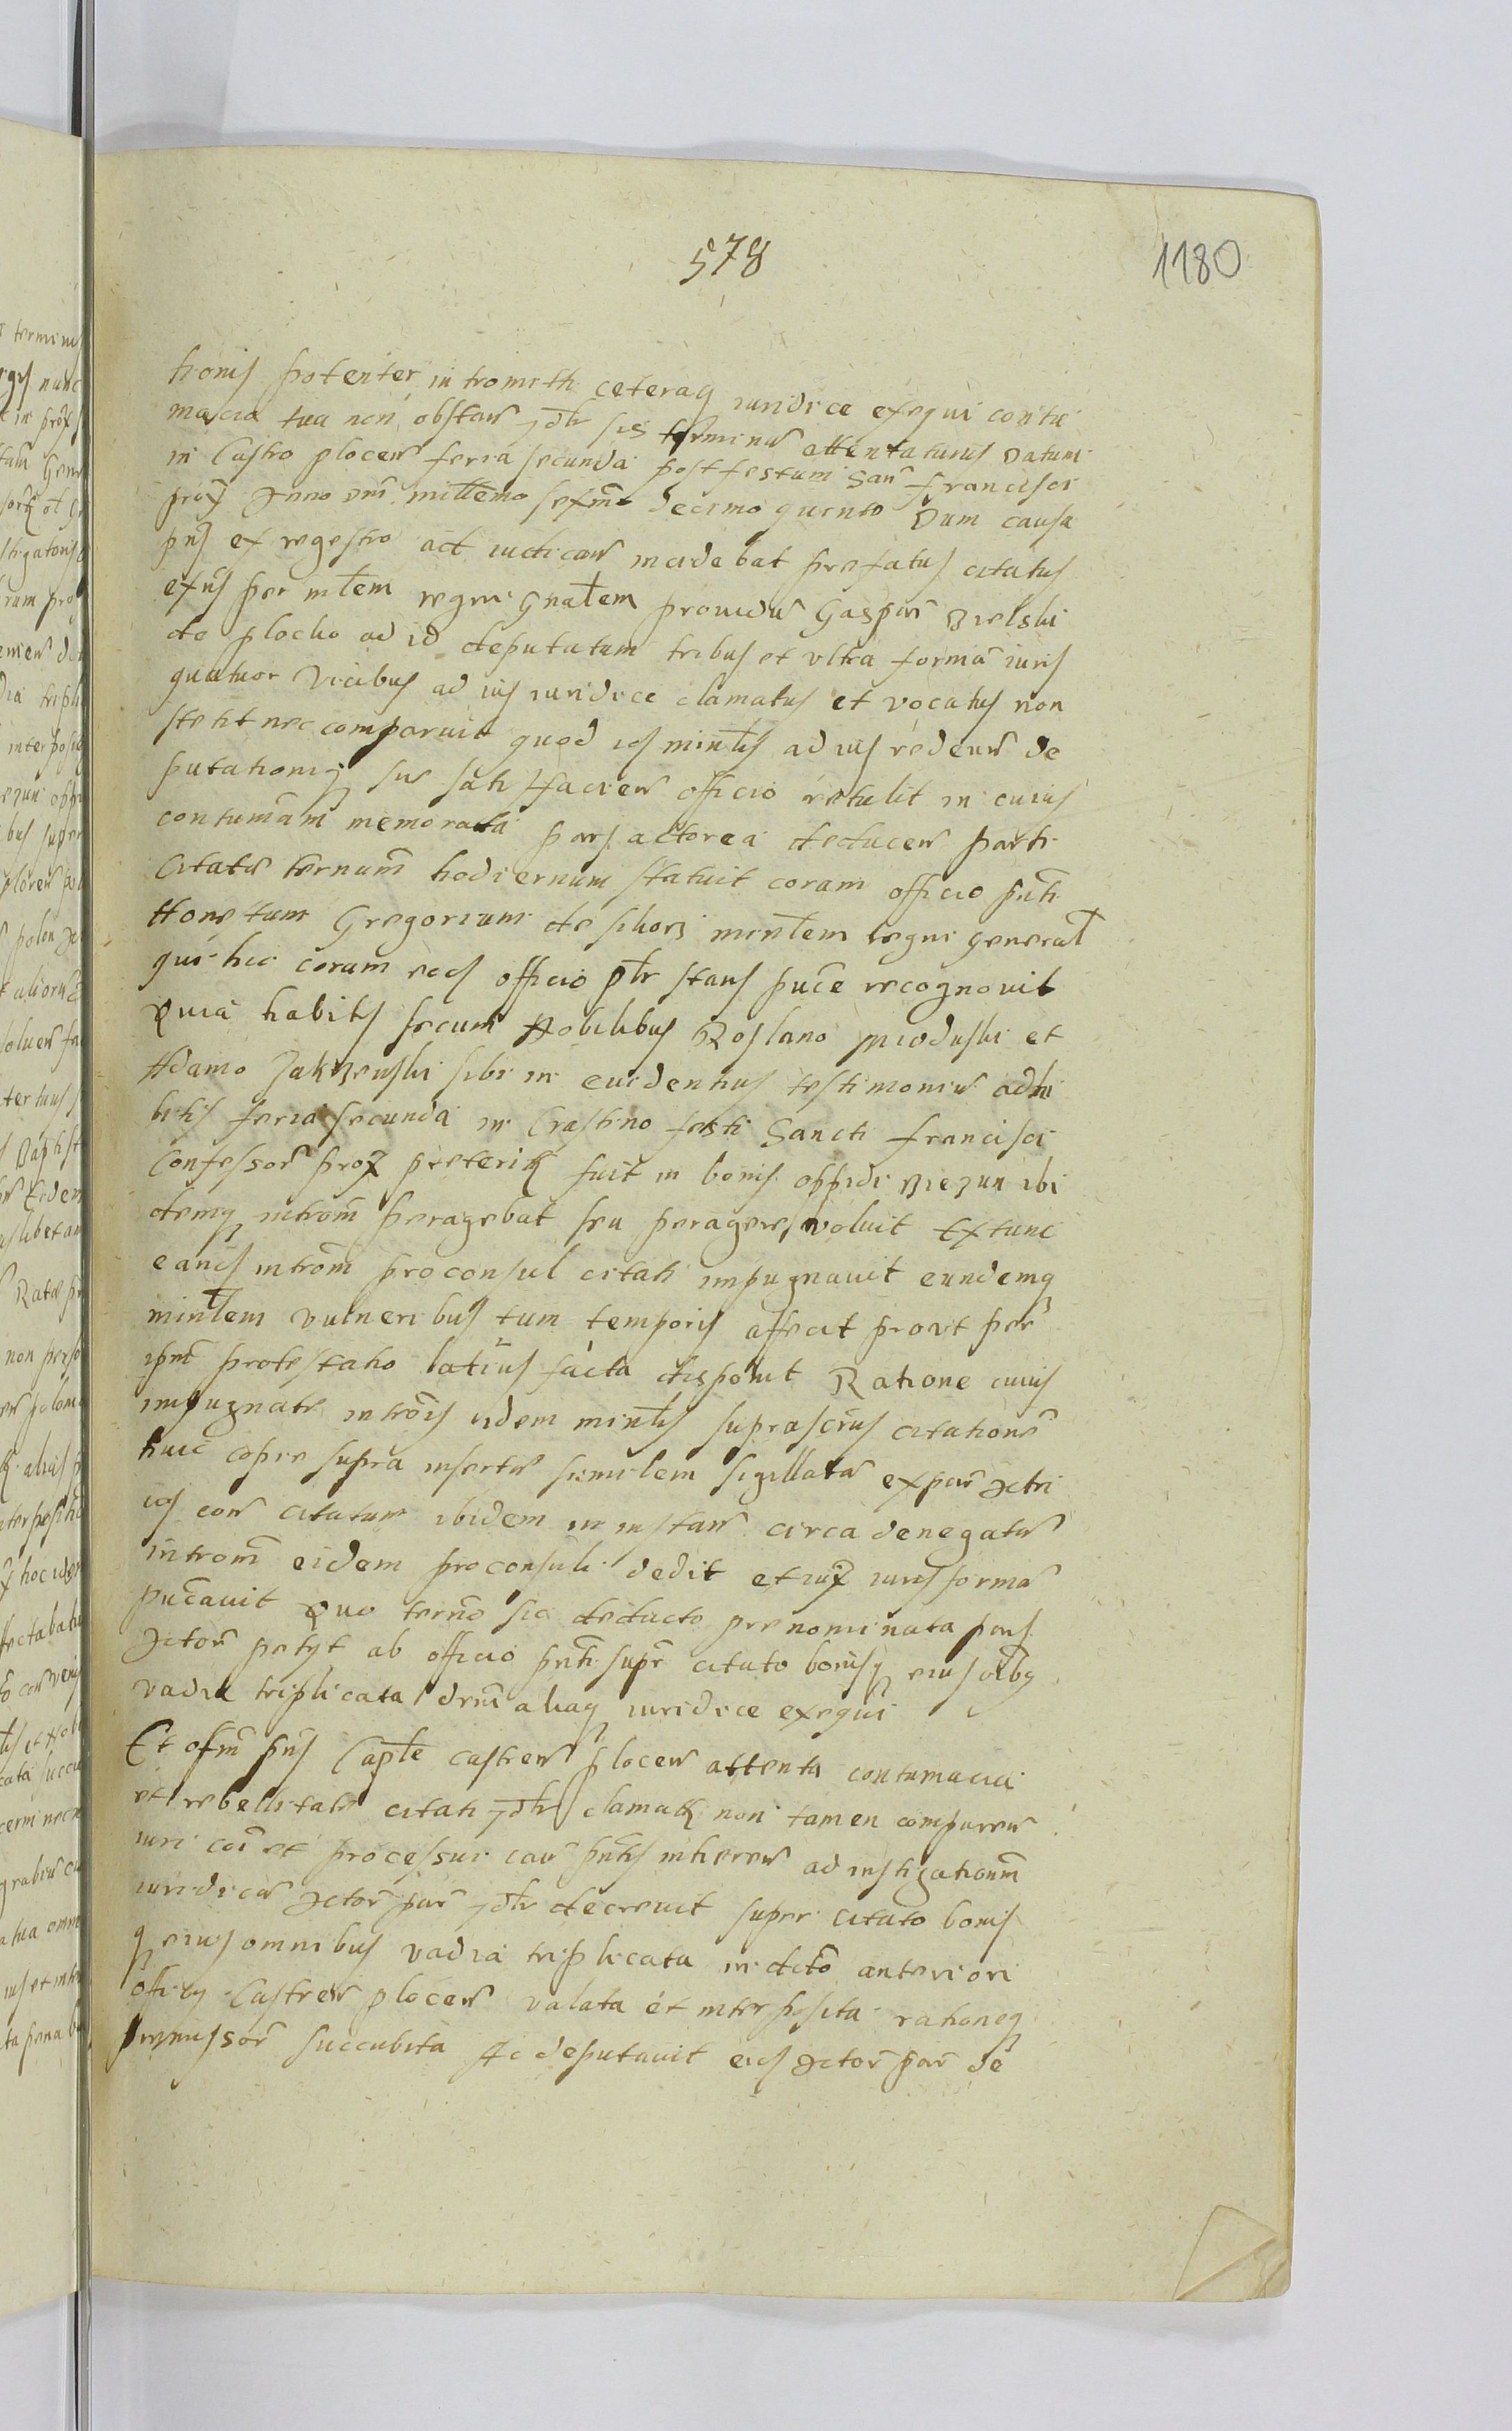 578
1180
tionis potenter intromitti ceteraq iuridice exequi contu
macia tua non obstan sis terminū attentaturus Datum
in Castro plocen feria secunda post festum San Francisci
prox Anno dni millemo sexm decimo quinto Dum causa
pns ex regestro ad iudican incidebat prefatus citatus
exns per mlem regni gnalem prouidū Gaspar Bielski
de plocko ad id deputatum tribus et vltra formā iuris
quatuor vicibus ad ius iuridice clamatus et vocatus non
stetit nec comparuit quod ids minlis ad ius redeun de
putationiq sue satisfacien officio retulit in cuius
contumām memorata pars actorea deducen parti
Citate ternum hodiernum statuit coram officio pnti
Honestum Gregorium de sikorz minlem regni general
qui hic coram eods officio plr stans puce recognouit
Quia habitis secum Nobilibus Roslano Mioduski et
Adamo Zakrzenski sibi in euidentius testimoniū adhi
bitis feria secunda in Crastino festi Sancti Francisci
Confessor prox preterit fuit in bonis oppidi Biezun ibi
demq introm peragebat seu peragere voluit Extunc
eands introm proconsul citati impugnauit eundemq
minlem vulneribus tum temporis affecit prout per
ipm protestatio latius facta disponit Ratione cuius
impugnate introis iidem minlis suprascrius citationē
huic copie supra inserte similem sigillatā expar Actri
ids con citatum ibidem in instan circa denegatā
introm eidem proconsuli dedit et iux iuris formā
pucauit Quo terno sic deducto prenominata pars
Actor petyt ab officio pnti supr citato bonisq eius oibq
vadia triplicata drm aliaq iuridice exequi
Et ofm pns Caple castren plocen attenta contumacia
et rebellitate citati clamati non tamen comparen
iuri coi et processui cau pntis inheren ad instigationem
iuridicā Actor par decreuit super citato bonis
q eius omnibus vadia triplicata in dcto anteriori
officy Castren plocen valata et interposita rationeq
premissor succubita Ac deputauit eids Actor par de